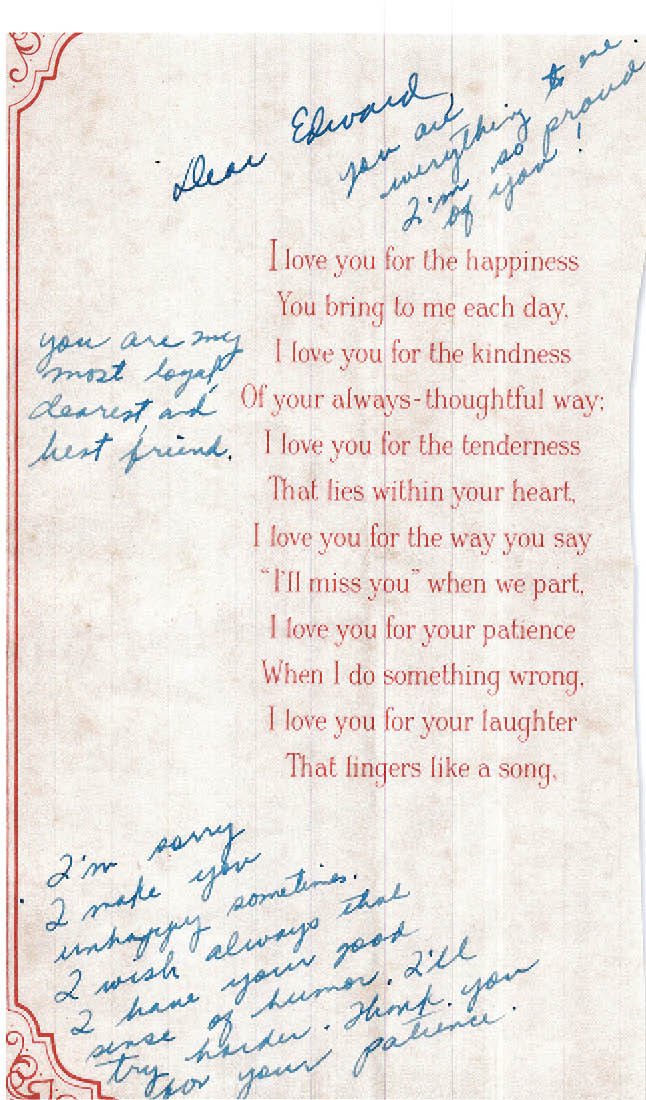 Dear Edward,
you are
everything to me.
I'm so proud
of you!
I love you for the happiness
You bring to me each day.
I love you for the kindness
Of your always-thoughtful way;
I love you for the tenderness
That lies within your heart,
I love you for the way you say
"I'll miss you" when we part,
I love you for your patience
When I do something wrong,
I love you for your laughter
That lingers like a song,
you are my
most loyal,
dearest, and
best friend.
I'm sorry
I make you
unhappy sometimes.
I wish always that
I have your good
sense of humor. I'll
try harder. Thank you
for your patience.